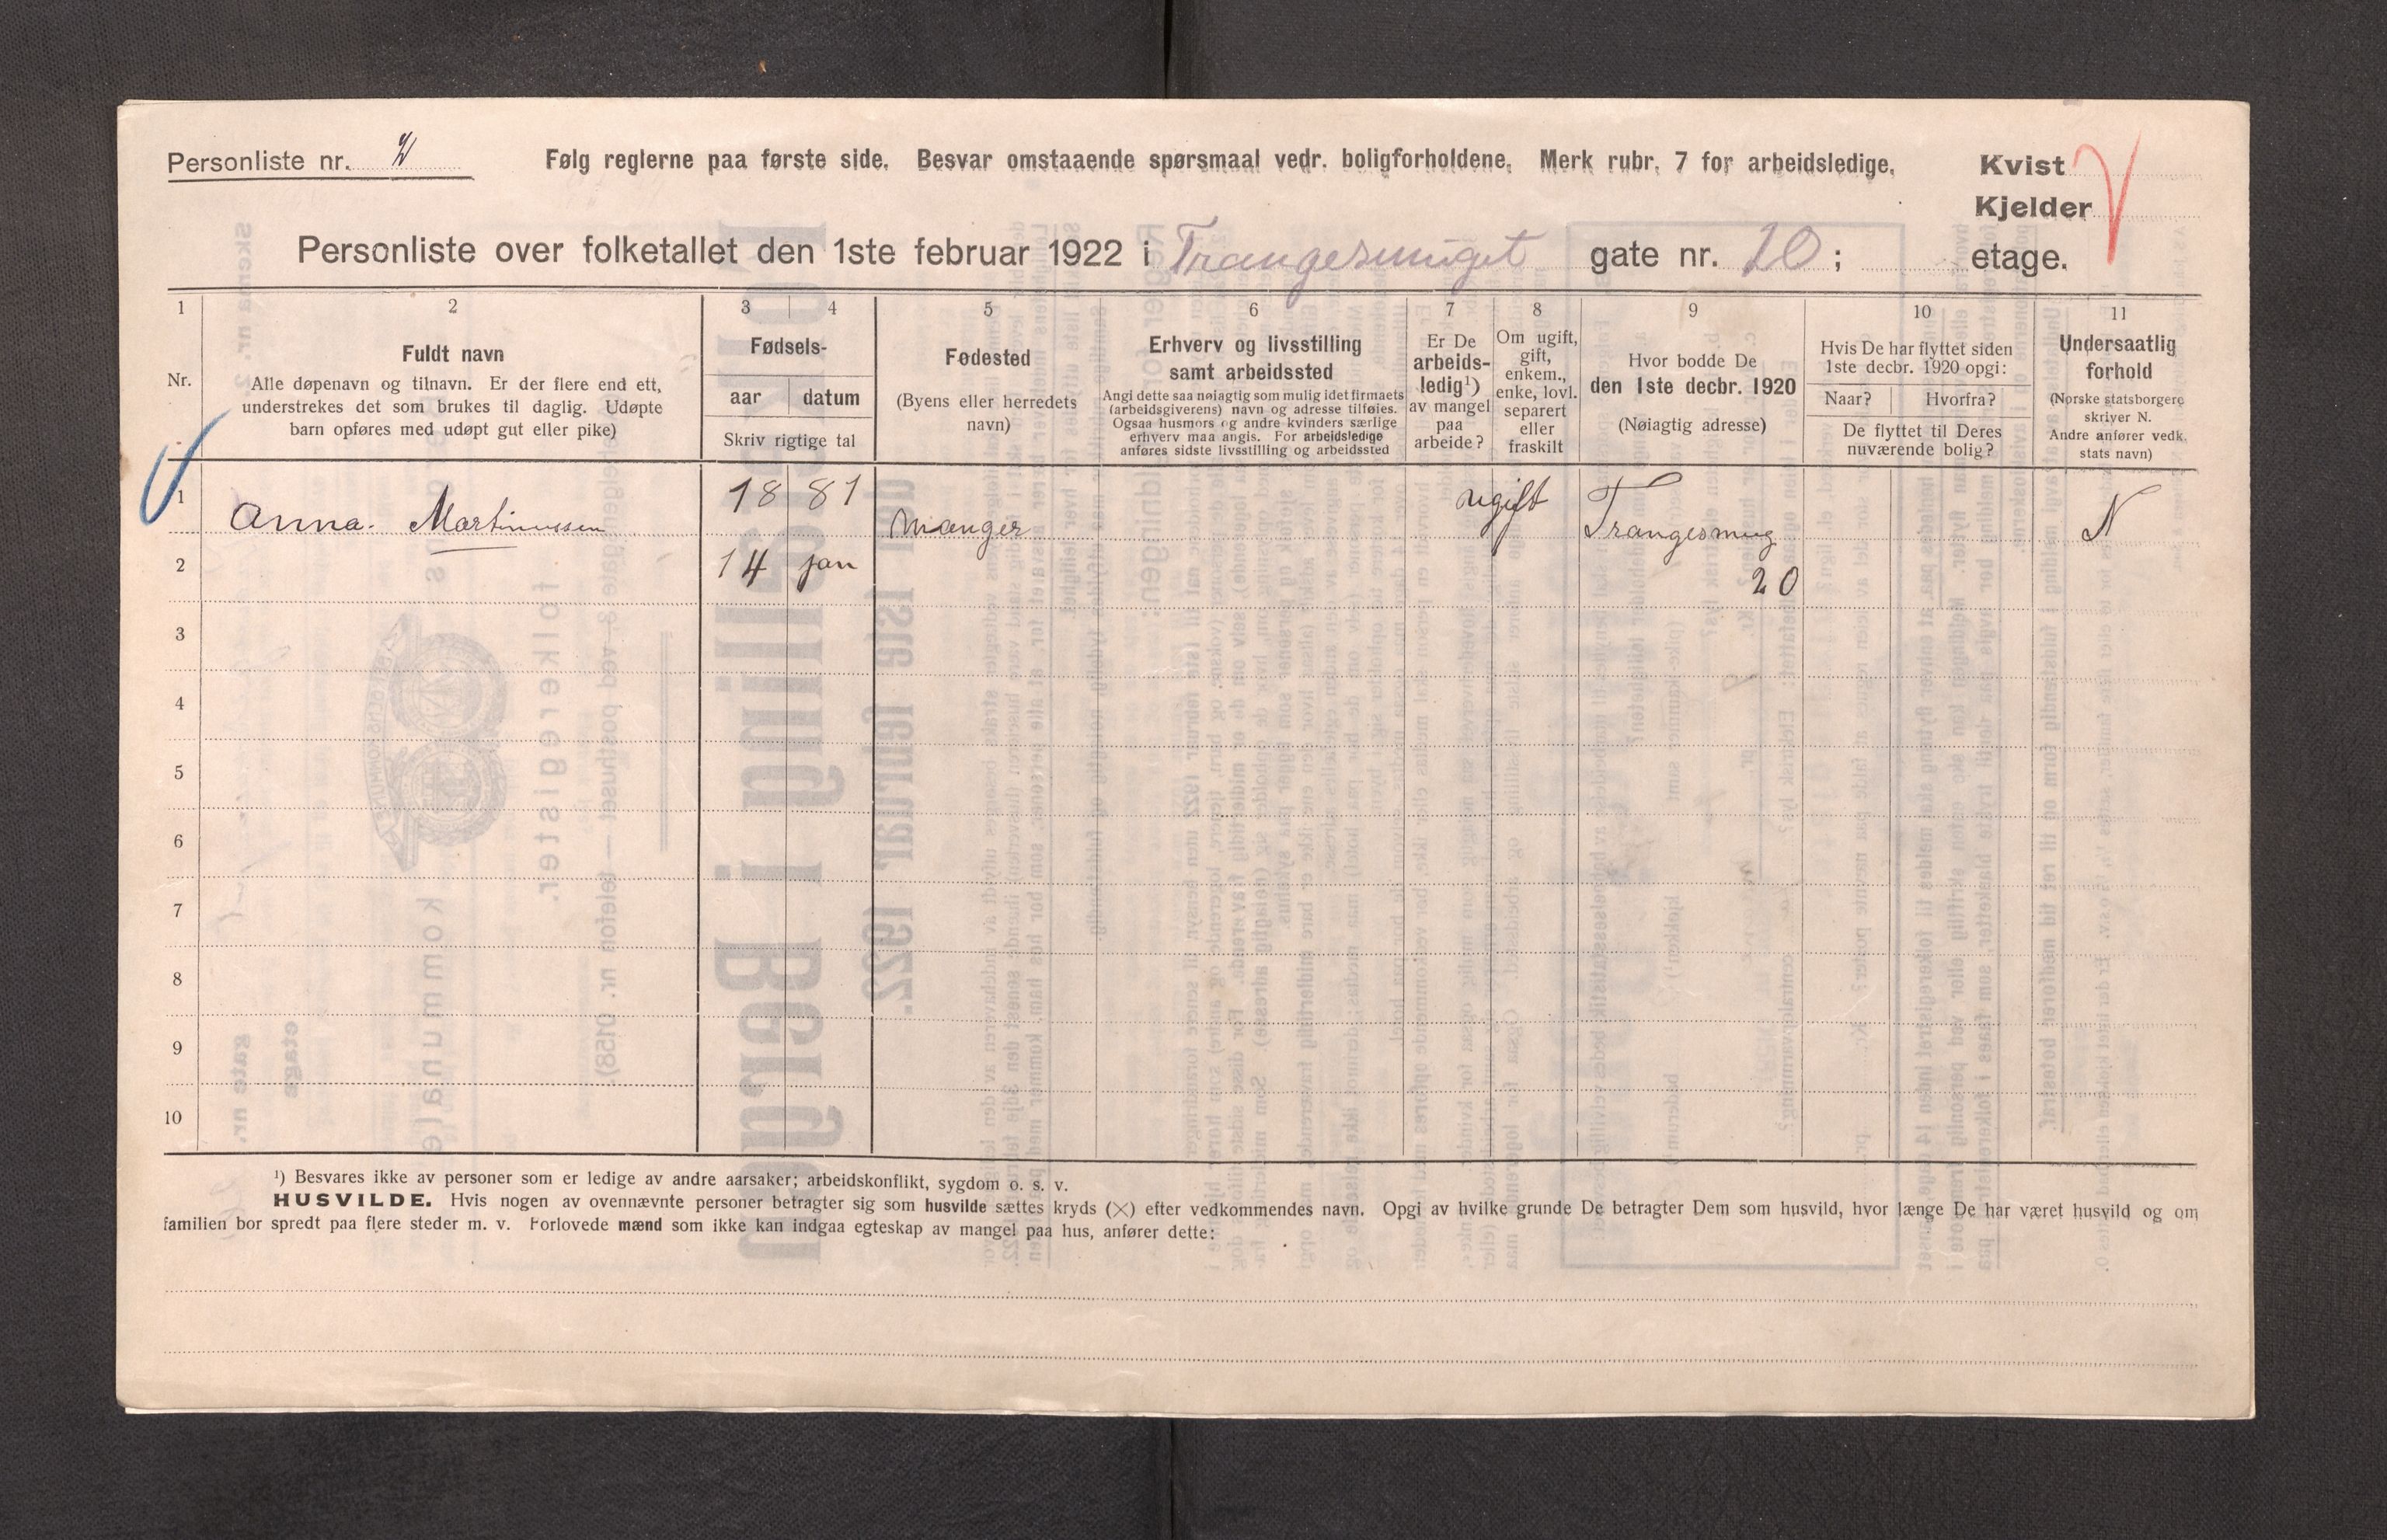 Personliste nr. 2
Følg reglerne paa første side. Besvar omstaaende spørsmaal vedr. boligforholdene. Merk rubr. 7 for arbeidsledige.
Kvist
Kjelder
Personliste over folketallet den 1ste februar 1922 i Trangesmuget gate nr. 20; etage.
1 2 3 4 5 6 7 8 9 10 11
Nr.
Fuldt navn
Alle døpenavn og tilnavn. Er der flere end ett,
understrekes det som brukes til daglig. Udøpte
barn opføres med udøpt gut eller pike)
Fødsels-
aar datum
Skriv rigtige tal
Fødested
(Byens eller herredets
navn)
Erhverv og livsstilling
samt arbeidssted
Angi dette saa nøiagtig som mulig idet firmaets
(arbeidsgiverens) navn og adresse tilføies.
Ogsaa husmors og andre kvinders særlige
erhverv maa angis. For arbeidsledige
anføres sidste livsstilling og arbeidssted
Er De
arbeids-
ledig¹)
av mangel
paa
arbeide?
Om ugift,
gift,
enkem.,
enke, lovl.
separert
eller
fraskilt
Hvor bodde De
den 1ste decbr. 1920
(Nøiagtig adresse)
Hvis De har flyttet siden
1ste decbr. 1920 opgi:
Naar? Hvorfra?
De flyttet til Deres
nuværende bolig?
Undersaatlig
forhold
(Norske statsborgere
skriver N.
Andre anfører vedk.
stats navn)
1 Anna. Martinussen 18 81 Manger ugift Trangesmug N
2 14 jan 20
3
4
5
6
7
8
9
10
¹) Besvares ikke av personer som er ledige av andre aarsaker; arbeidskonflikt, sygdom o. s. v.
HUSVILDE. Hvis nogen av ovennævnte personer betragter sig som husvilde sættes kryds (×) efter vedkommendes navn. Opgi av hvilke grunde De betragter Dem som husvild, hvor længe De har været husvild og om
familien bor spredt paa flere steder m. v. Forlovede mænd som ikke kan indgaa egteskap av mangel paa hus, anfører dette: